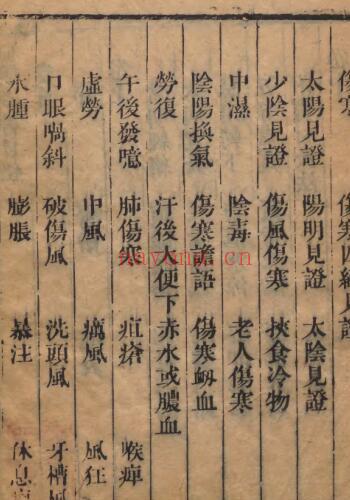 傷寒 傷寒四經見證
太陽見證 陽明見證 太陰見證
少陰見證 傷風傷寒 挾食冷物
中濕 陰毒 老人傷寒
陰陽換氣 傷寒譫語 傷寒衂血
勞復 汗後大便下赤水或膿血
午後發噫 肺傷寒 疽瘡 喉痺
虛勞 中風 癘風 風狂
口眼喎斜 破傷風 洗頭風 牙槽風
水腫 膨脹 暴注 休息
nayona.cn